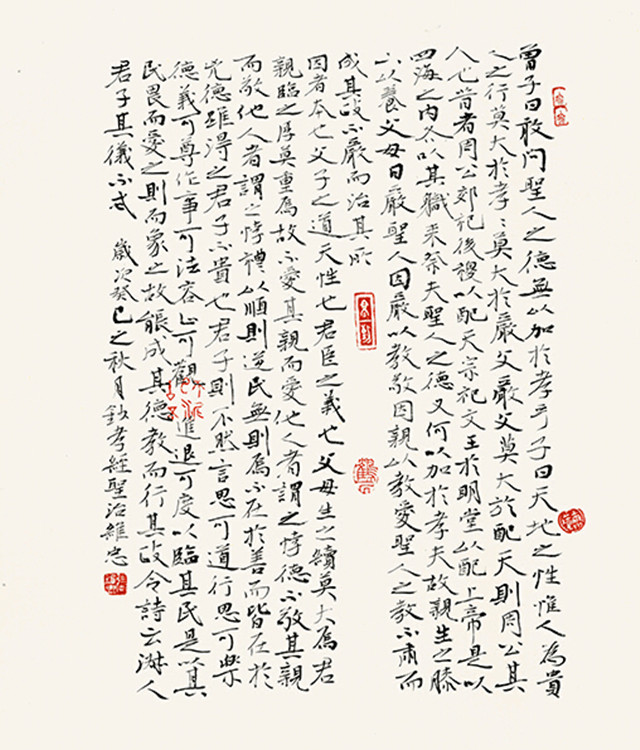 曾子曰敢問聖人之德無以加於孝乎子曰天地之性惟人為貴
人之行莫大於孝〻莫大於嚴父嚴父莫大於配天則周公其
人也昔者周公郊祀後稷以配天宗祀文王於明堂以配上帝是以
四海之内各以其職來祭夫聖人之德又何以加於孝夫故親生之膝
下以養父母日嚴聖人因嚴以教敬因親以教愛聖人之教不肅而
成其政不嚴而治其所
因者本也父子之道天性也君臣之義也父母生之續莫大焉君
親臨之厚莫重焉故不愛其親而愛他人者謂之悖德不敬其親
而敬他人者謂之悖禮以順則逆民無則焉不在於善而皆在於
凶德雖得之君子不貴也君子則不然言思可道行思可樂
德義可尊作事可法容止可觀進退可度以臨其民是以其
民畏而愛之則而象之故能成其德教而行其政令詩云淑人
君子其儀不忒 歲次癸巳之秋月敬孝經聖治維忠